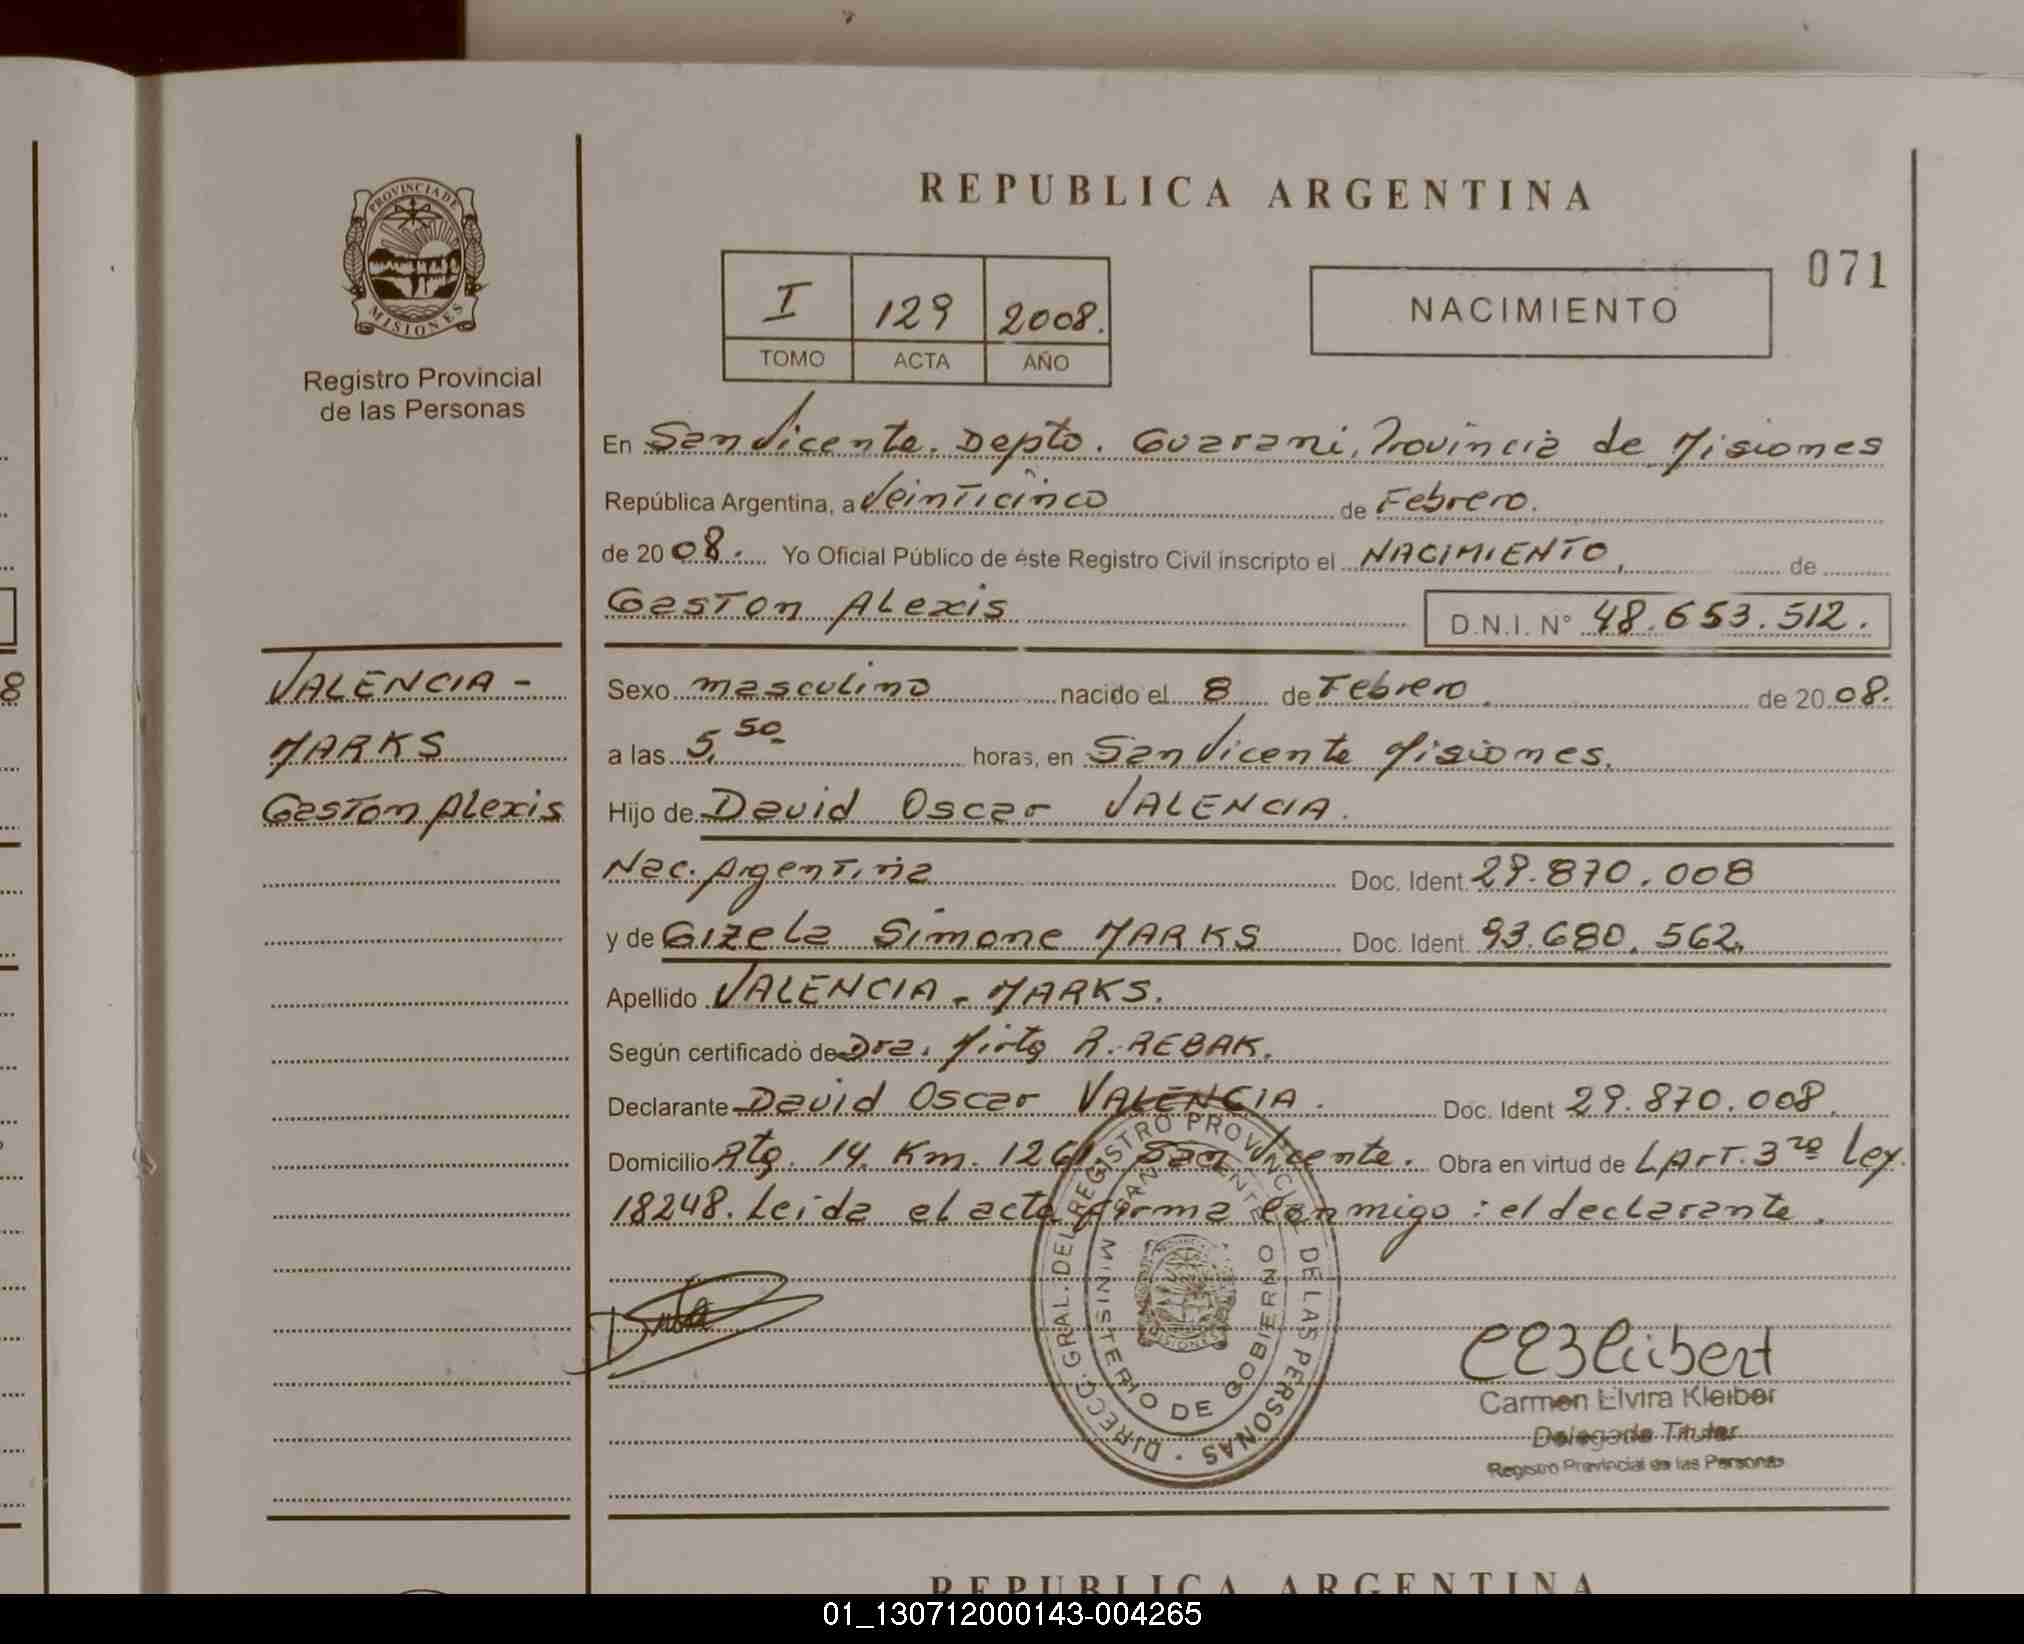 REPUBLICA ARGENTINA
PROVINCIA DE MISIONES
Registro Provincial
de las Personas
I 129 2008.
TOMO ACTA AÑO
NACIMIENTO
071
En San Vicente. Depto. Guarani, Provincia de Misiones
República Argentina, a Veinticinco de Febrero.
de 2008. Yo Oficial Público de éste Registro Civil inscripto el NACIMIENTO, de
Gaston Alexis D.N.I. N° 48.653.512.
VALENCIA -
MARKS
Gaston Alexis
Sexo masculino nacido el 8 de Febrero de 2008.
a las 5,50 horas, en San Vicente Misiones.
Hijo de David Oscar VALENCIA.
Nac. Argentina Doc. Ident. 29.870.008
y de Gizela Simone MARKS Doc. Ident. 93.680.562,
Apellido VALENCIA - MARKS.
Según certificado de Dra. Mirta R. REBAK.
Declarante David Oscar VALENCIA. Doc. Ident 29.870.008.
Domicilio Rta. 14. Km. 1261. San Vicente. Obra en virtud de L Art. 3ro Ley.
18248. Leida el acta firma conmigo: el declarante.
DIRECC. GRAL. DEL REGISTRO PROVINCIAL DE LAS PERSONAS
SAN VICENTE
MINISTERIO DE GOBIERNO
Carmen Elvira Kleiber
Delegada Titular
Registro Provincial de las Personas
REPUBLICA ARGENTINA
8
01_130712000143-004265